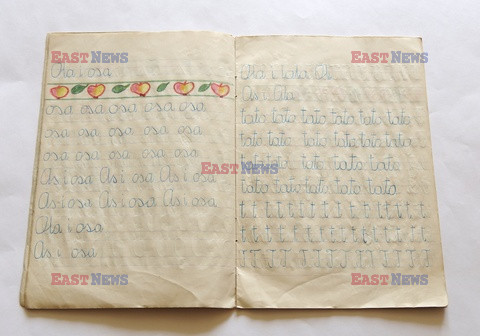 EAST NEWS
EAST NEWS
Ala i osa
osa osa osa osa osa
osa osa osa osa osa
osa osa osa osa osa
As i osa As i osa As i osa
As i osa As i osa As i osa
Ala i osa
As i osa
EAST NEWS
Ala i tata
As i Ala
tata tata tata tata tata tata
tata tata tata tata tata tata
EAST NEWS
tata tata tata tata
tata tata tata tata tata
t t t t t t t t t t t t t t t
t t t t t t t t t t t t t t t
T T T T T T T T T T T T
EAST NEWS